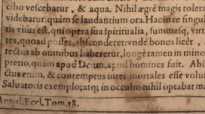 olho vescebatur, & aqua. Nihil ægrè magis toler
videbatur, quàm se laudantium ora. Hac in re singul
tis visus est, qui opera sua spiritualia,
tes, quoad posset, abscondere
ab omnibus haberetur, longè tamen in minor
pretio, quàm apud Deum, apud homines fuit. Ab
ctus enim, & contemptus inter mortales esse volui
Saluatoris exemplo, atq; in occulto nihil optabat ma
Annal. Eccl. Tom. 18.